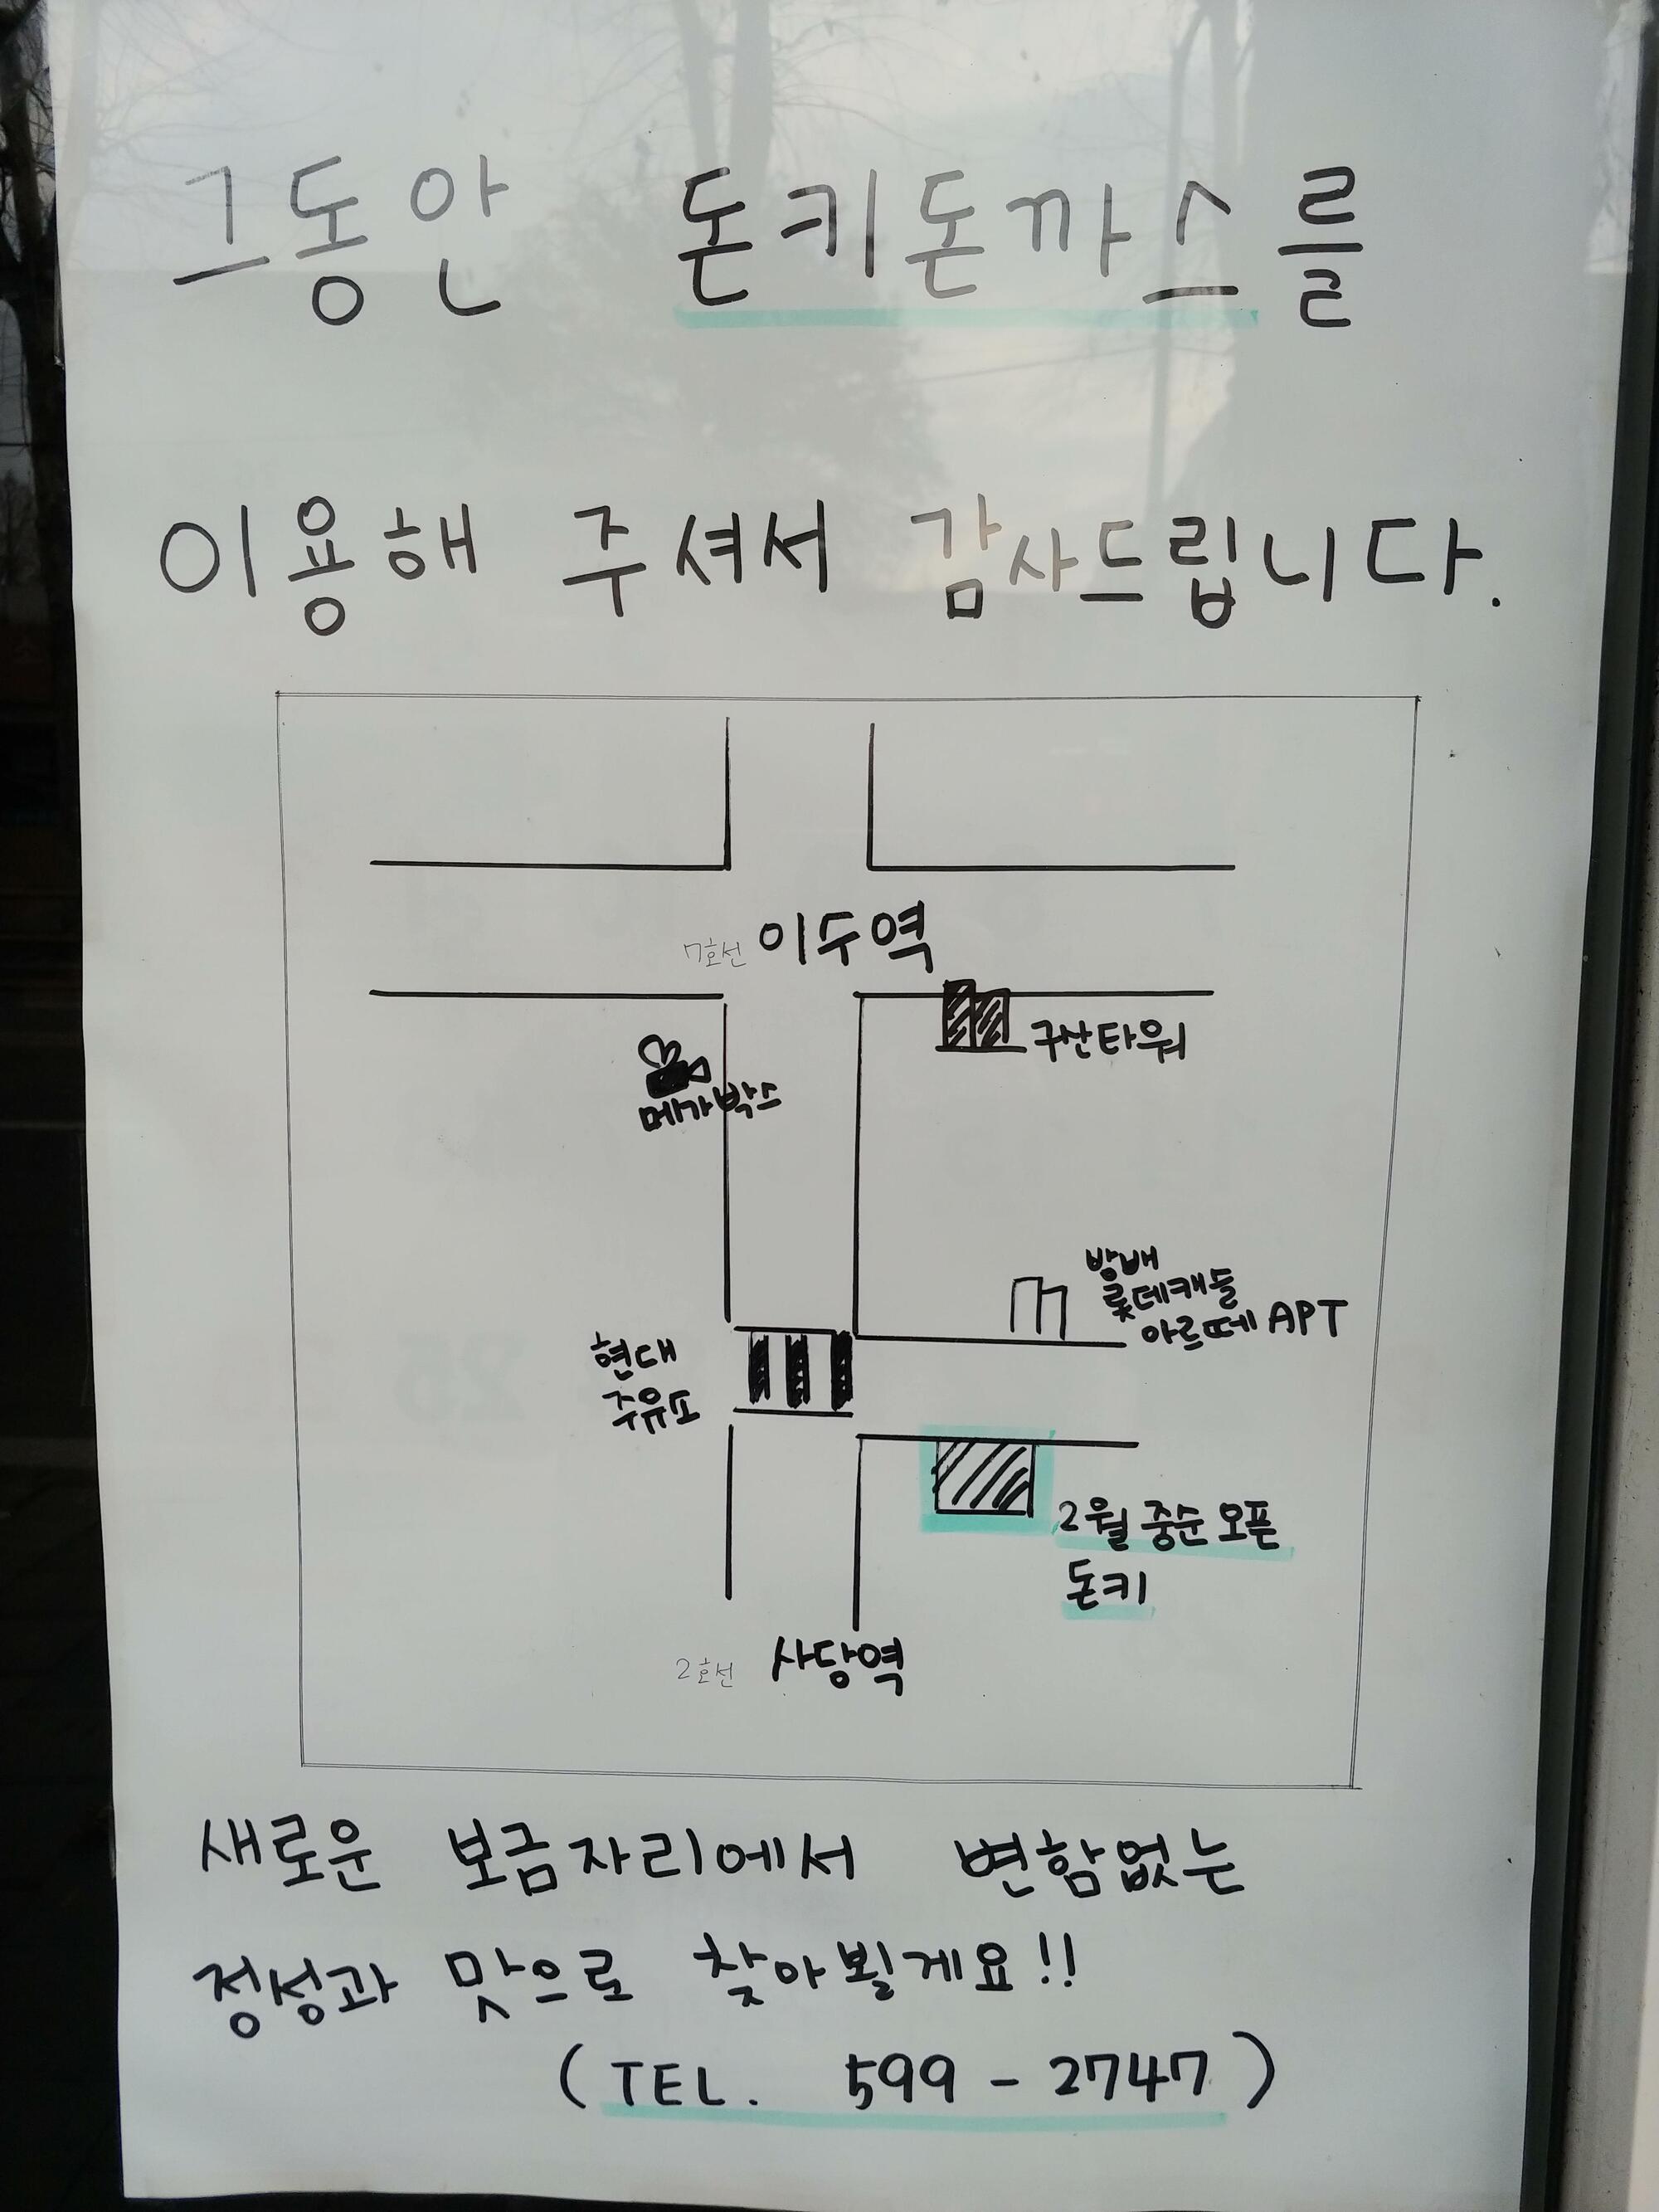 그동안 돈키돈까스를
이용해 주셔서 감사드립니다.
7호선 이수역
구산타워
메가박스
방배
롯데캐슬
아르떼 APT
현대
주유소
2월 중순 오픈
돈키
2호선 사당역
새로운 보금자리에서 변함없는
정성과 맛으로 찾아뵐게요!!
(TEL. 599-2747)